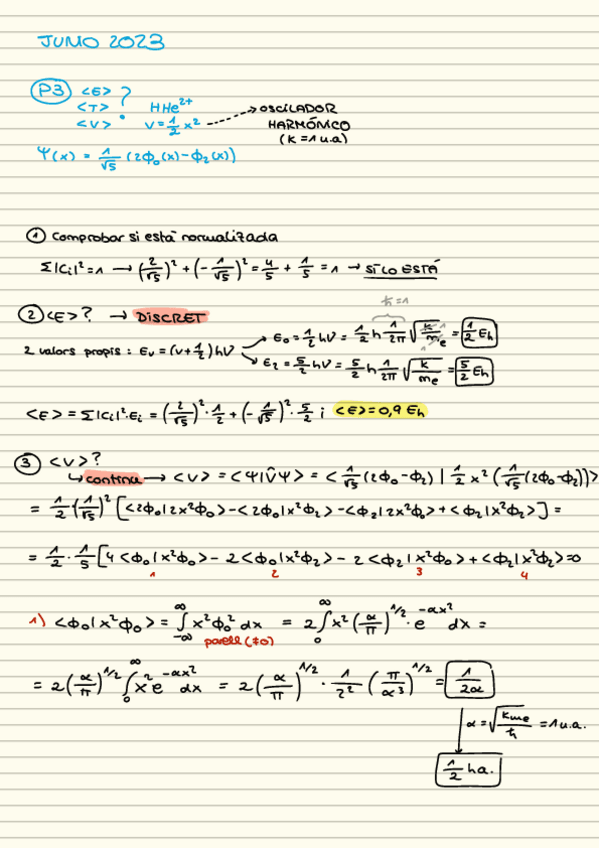 JUNIO 2023
P3 <E> ?
<T> HHe²⁺
<V> V=½x² ---> OSCILADOR
HARMÓNICO
(k=1 u.a)
Ψ(x) = 1/√5 (2ϕ₀(x)-ϕ₂(x))
① Comprobar si está normalizada
Σ|Cᵢ|²=1 → (2/√5)² + (-1/√5)² = 4/5 + 1/5 = 1 → SÍ LO ESTÁ
ℏ=1
② <E>? → DISCRET
2 valors propis : Eᵥ=(v+½)hν
E₀=½hν = ½ h 1/2π √(k/mₑ) = ½ Eₕ
E₂=5/2 hν = 5/2 h 1/2π √(k/mₑ) = 5/2 Eₕ
<E> = Σ|Cᵢ|²·Eᵢ = (2/√5)²·½ + (-1/√5)²·5/2 ; <E>=0,9 Eₕ
③ <V>?
↳ continu → <V> = <Ψ|V̂Ψ> = <1/√5(2ϕ₀-ϕ₂) | ½x²(1/√5(2ϕ₀-ϕ₂))>
= ½(1/√5)² [<2ϕ₀|2x²ϕ₀>-<2ϕ₀|x²ϕ₂>-<ϕ₂|2x²ϕ₀>+<ϕ₂|x²ϕ₂>] =
= ½·1/5 [4<ϕ₀|x²ϕ₀>-2<ϕ₀|x²ϕ₂>-2<ϕ₂|x²ϕ₀>+<ϕ₂|x²ϕ₂>=0
1 2 3 4
1) <ϕ₀|x²ϕ₀> = ∫_{-∞}^{∞} x²ϕ₀² dx = 2∫₀^∞ x²(α/π)^{1/2}·e^{-αx²} dx =
parell (≠0)
= 2(α/π)^{1/2} ∫₀^∞ x² e^{-αx²} dx = 2(α/π)^{1/2} · 1/2² (π/α³)^{1/2} = 1/2α
α=√(kmₑ)/ℏ = 1 u.a.
½ ha.